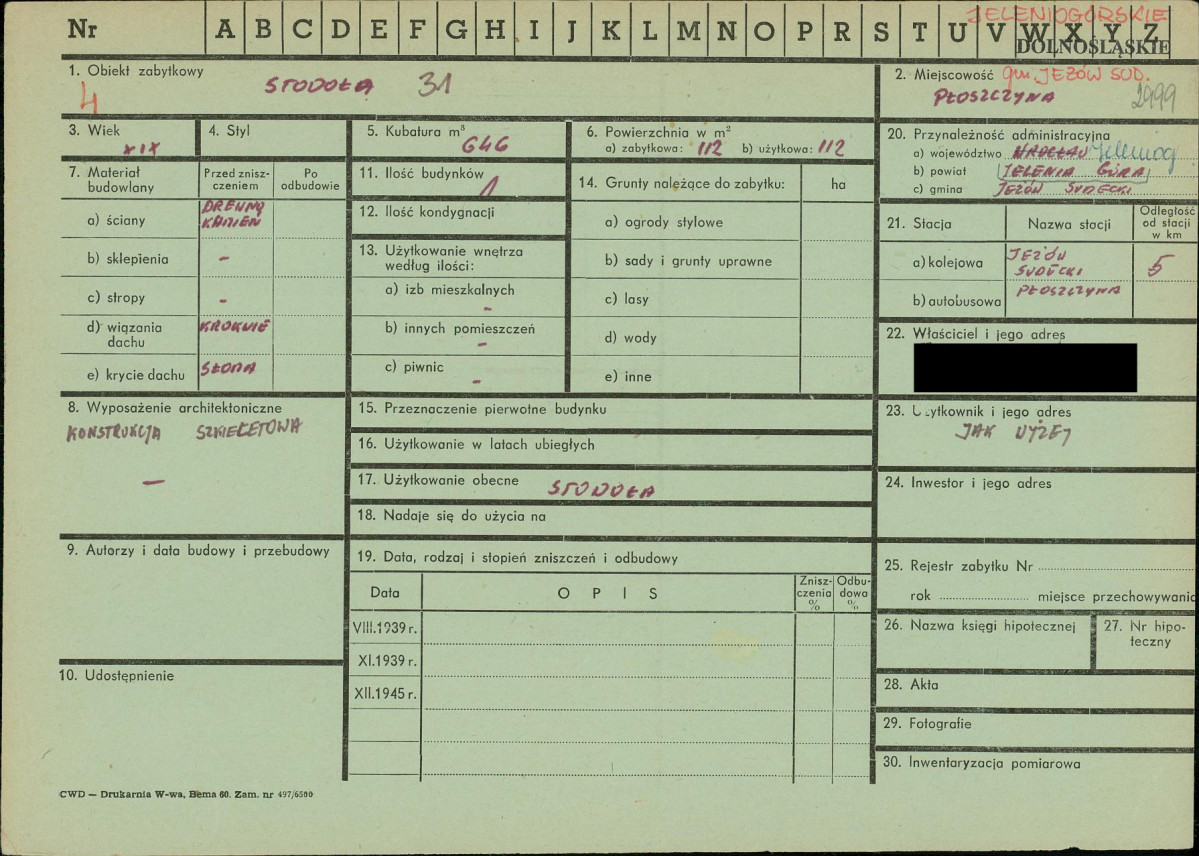 JELENIOGÓRSKIE
Nr A B C D E F G H I J K L M N O P R S T U V W X Y Z
DOLNOŚLĄSKIE
1. Obiekt zabytkowy
STODOŁA 31
4
2. Miejscowość gm. JEŻÓW SUD.
PŁOSZCZYNA 2999
3. Wiek
XIX
4. Styl
5. Kubatura m³
646
6. Powierzchnia w m²
a) zabytkowa: 112 b) użytkowa: 112
7. Materiał budowlany
Przed zniszczeniem
Po odbudowie
a) ściany DREWNO
KAMIEŃ
b) sklepienia -
c) stropy -
d) wiązania dachu KROKWIE
e) krycie dachu SŁOMA
8. Wyposażenie architektoniczne
KONSTRUKCJA SZKIELETOWA
—
9. Autorzy i data budowy i przebudowy
10. Udostępnienie
11. Ilość budynków
1
12. Ilość kondygnacji
13. Użytkowanie wnętrza
według ilości:
a) izb mieszkalnych
-
b) innych pomieszczeń
-
c) piwnic
-
14. Grunty należące do zabytku: ha
a) ogrody stylowe
b) sady i grunty uprawne
c) lasy
d) wody
e) inne
15. Przeznaczenie pierwotne budynku
16. Użytkowanie w latach ubiegłych
17. Użytkowanie obecne STODOŁA
18. Nadaje się do użycia na
19. Data, rodzaj i stopień zniszczeń i odbudowy
Data OPIS Zniszczenia % Odbudowa %
VIII.1939 r.
XI.1939 r.
XII.1945 r.
20. Przynależność administracyjna
a) województwo WROCŁAW Jeleniog
b) powiat JELENIA GÓRA
c) gmina JEŻÓW SUDECKI
21. Stacja Nazwa stacji Odległość od stacji w km
a) kolejowa JEŻÓW
SUDECKI 5
b) autobusowa PŁOSZCZYNA
22. Właściciel i jego adres
23. Użytkownik i jego adres
JAK WYŻEJ
24. Inwestor i jego adres
25. Rejestr zabytku Nr
rok miejsce przechowywania
26. Nazwa księgi hipotecznej
27. Nr hipoteczny
28. Akta
29. Fotografie
30. Inwentaryzacja pomiarowa
CWD — Drukarnia W-wa, Bema 60. Zam. nr 497/6500